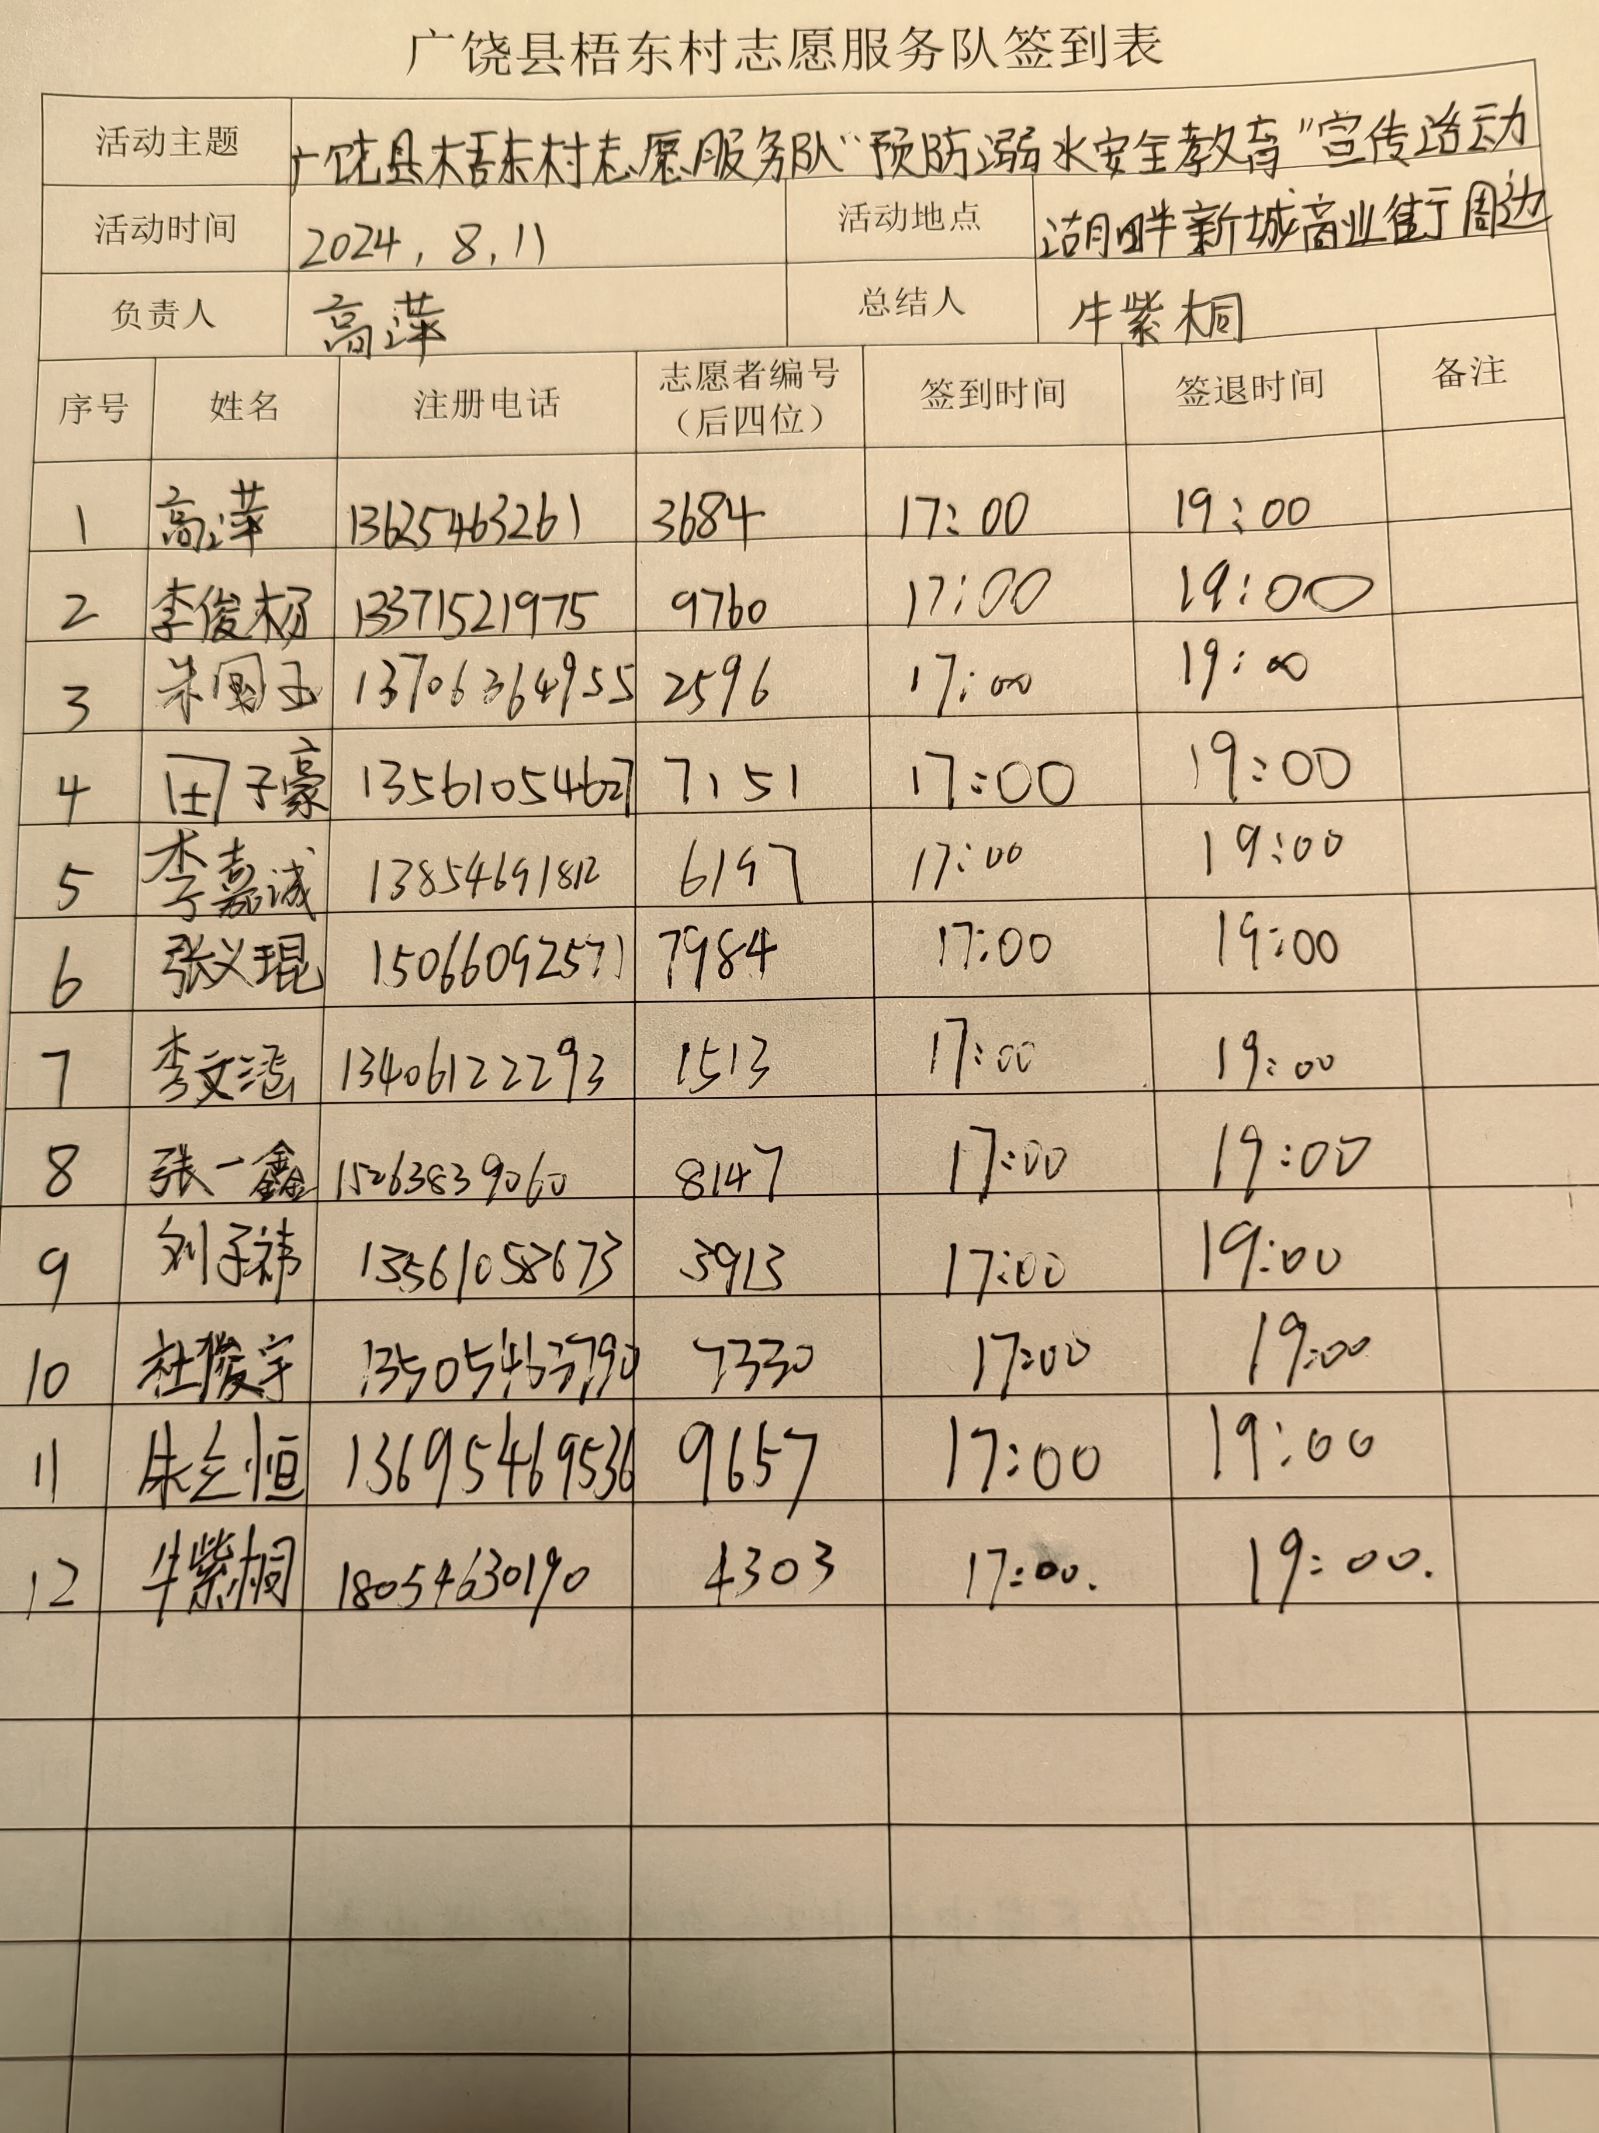 广饶县梧东村志愿服务队签到表
活动主题 广饶县梧东村志愿服务队“预防溺水安全教育”宣传活动
活动时间 2024.8.11 活动地点 湖畔新城商业街周边
负责人 高萍 总结人 牛紫桐
序号 姓名 注册电话 志愿者编号（后四位） 签到时间 签退时间 备注
1 高萍 13625463261 3684 17:00 19:00
2 李俊杨 13371521975 9760 17:00 19:00
3 朱国玉 13706364955 2596 17:00 19:00
4 田子豪 13561054627 7151 17:00 19:00
5 李嘉诚 13854691812 6197 17:00 19:00
6 张义琨 15066092571 7984 17:00 19:00
7 李文 13406122293 1513 17:00 19:00
8 张一鑫 15263839060 8147 17:00 19:00
9 刘子祎 13561058673 3913 17:00 19:00
10 杜俊宇 13505463790 7330 17:00 19:00
11 朱立恒 13695469536 9657 17:00 19:00
12 牛紫桐 18054630190 4303 17:00. 19:00.